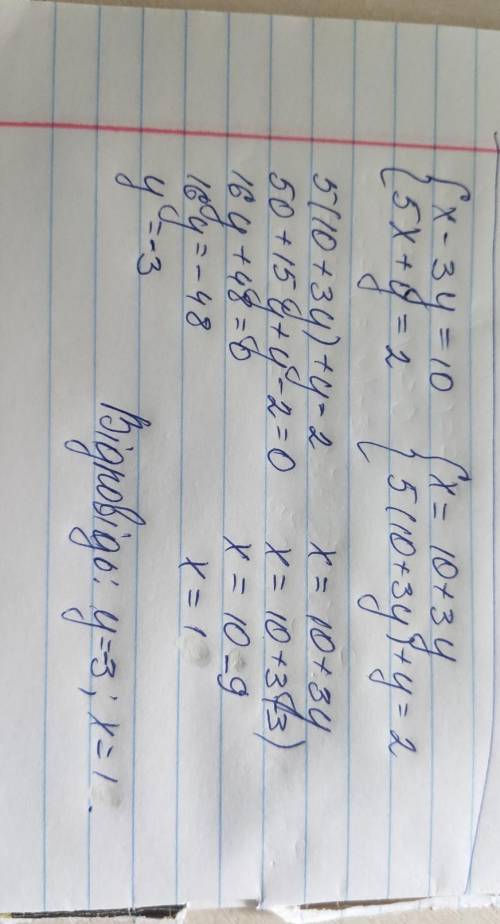 { x - 3y = 10 { x = 10 + 3y
{ 5x + y = 2 { 5(10 + 3y) + y = 2
5(10 + 3y) + y = 2 x = 10 + 3y
50 + 15y + y - 2 = 0 x = 10 + 3(-3)
16y + 48 = 0 x = 10 - 9
16y = -48 x = 1
y = -3
Відповідь: y = -3; x = 1.